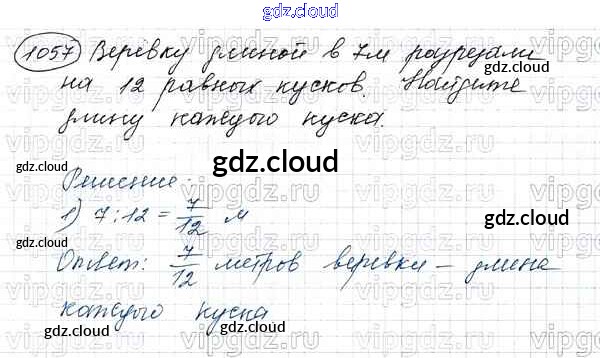 gdz.cloud
1057 Верёвку длиной в 7м разрезали
на 12 равных кусков. Найдите
длину каждого куска.
gdz.cloud
Решение.
1) 7:12 = 7/12 м
Ответ: 7/12 метров веревки – длина
каждого куска
gdz.cloud
gdz.cloud
gdz.cloud
gdz.cloud
gdz.cloud
vipgdz.ru
vipgdz.ru
vipgdz.ru